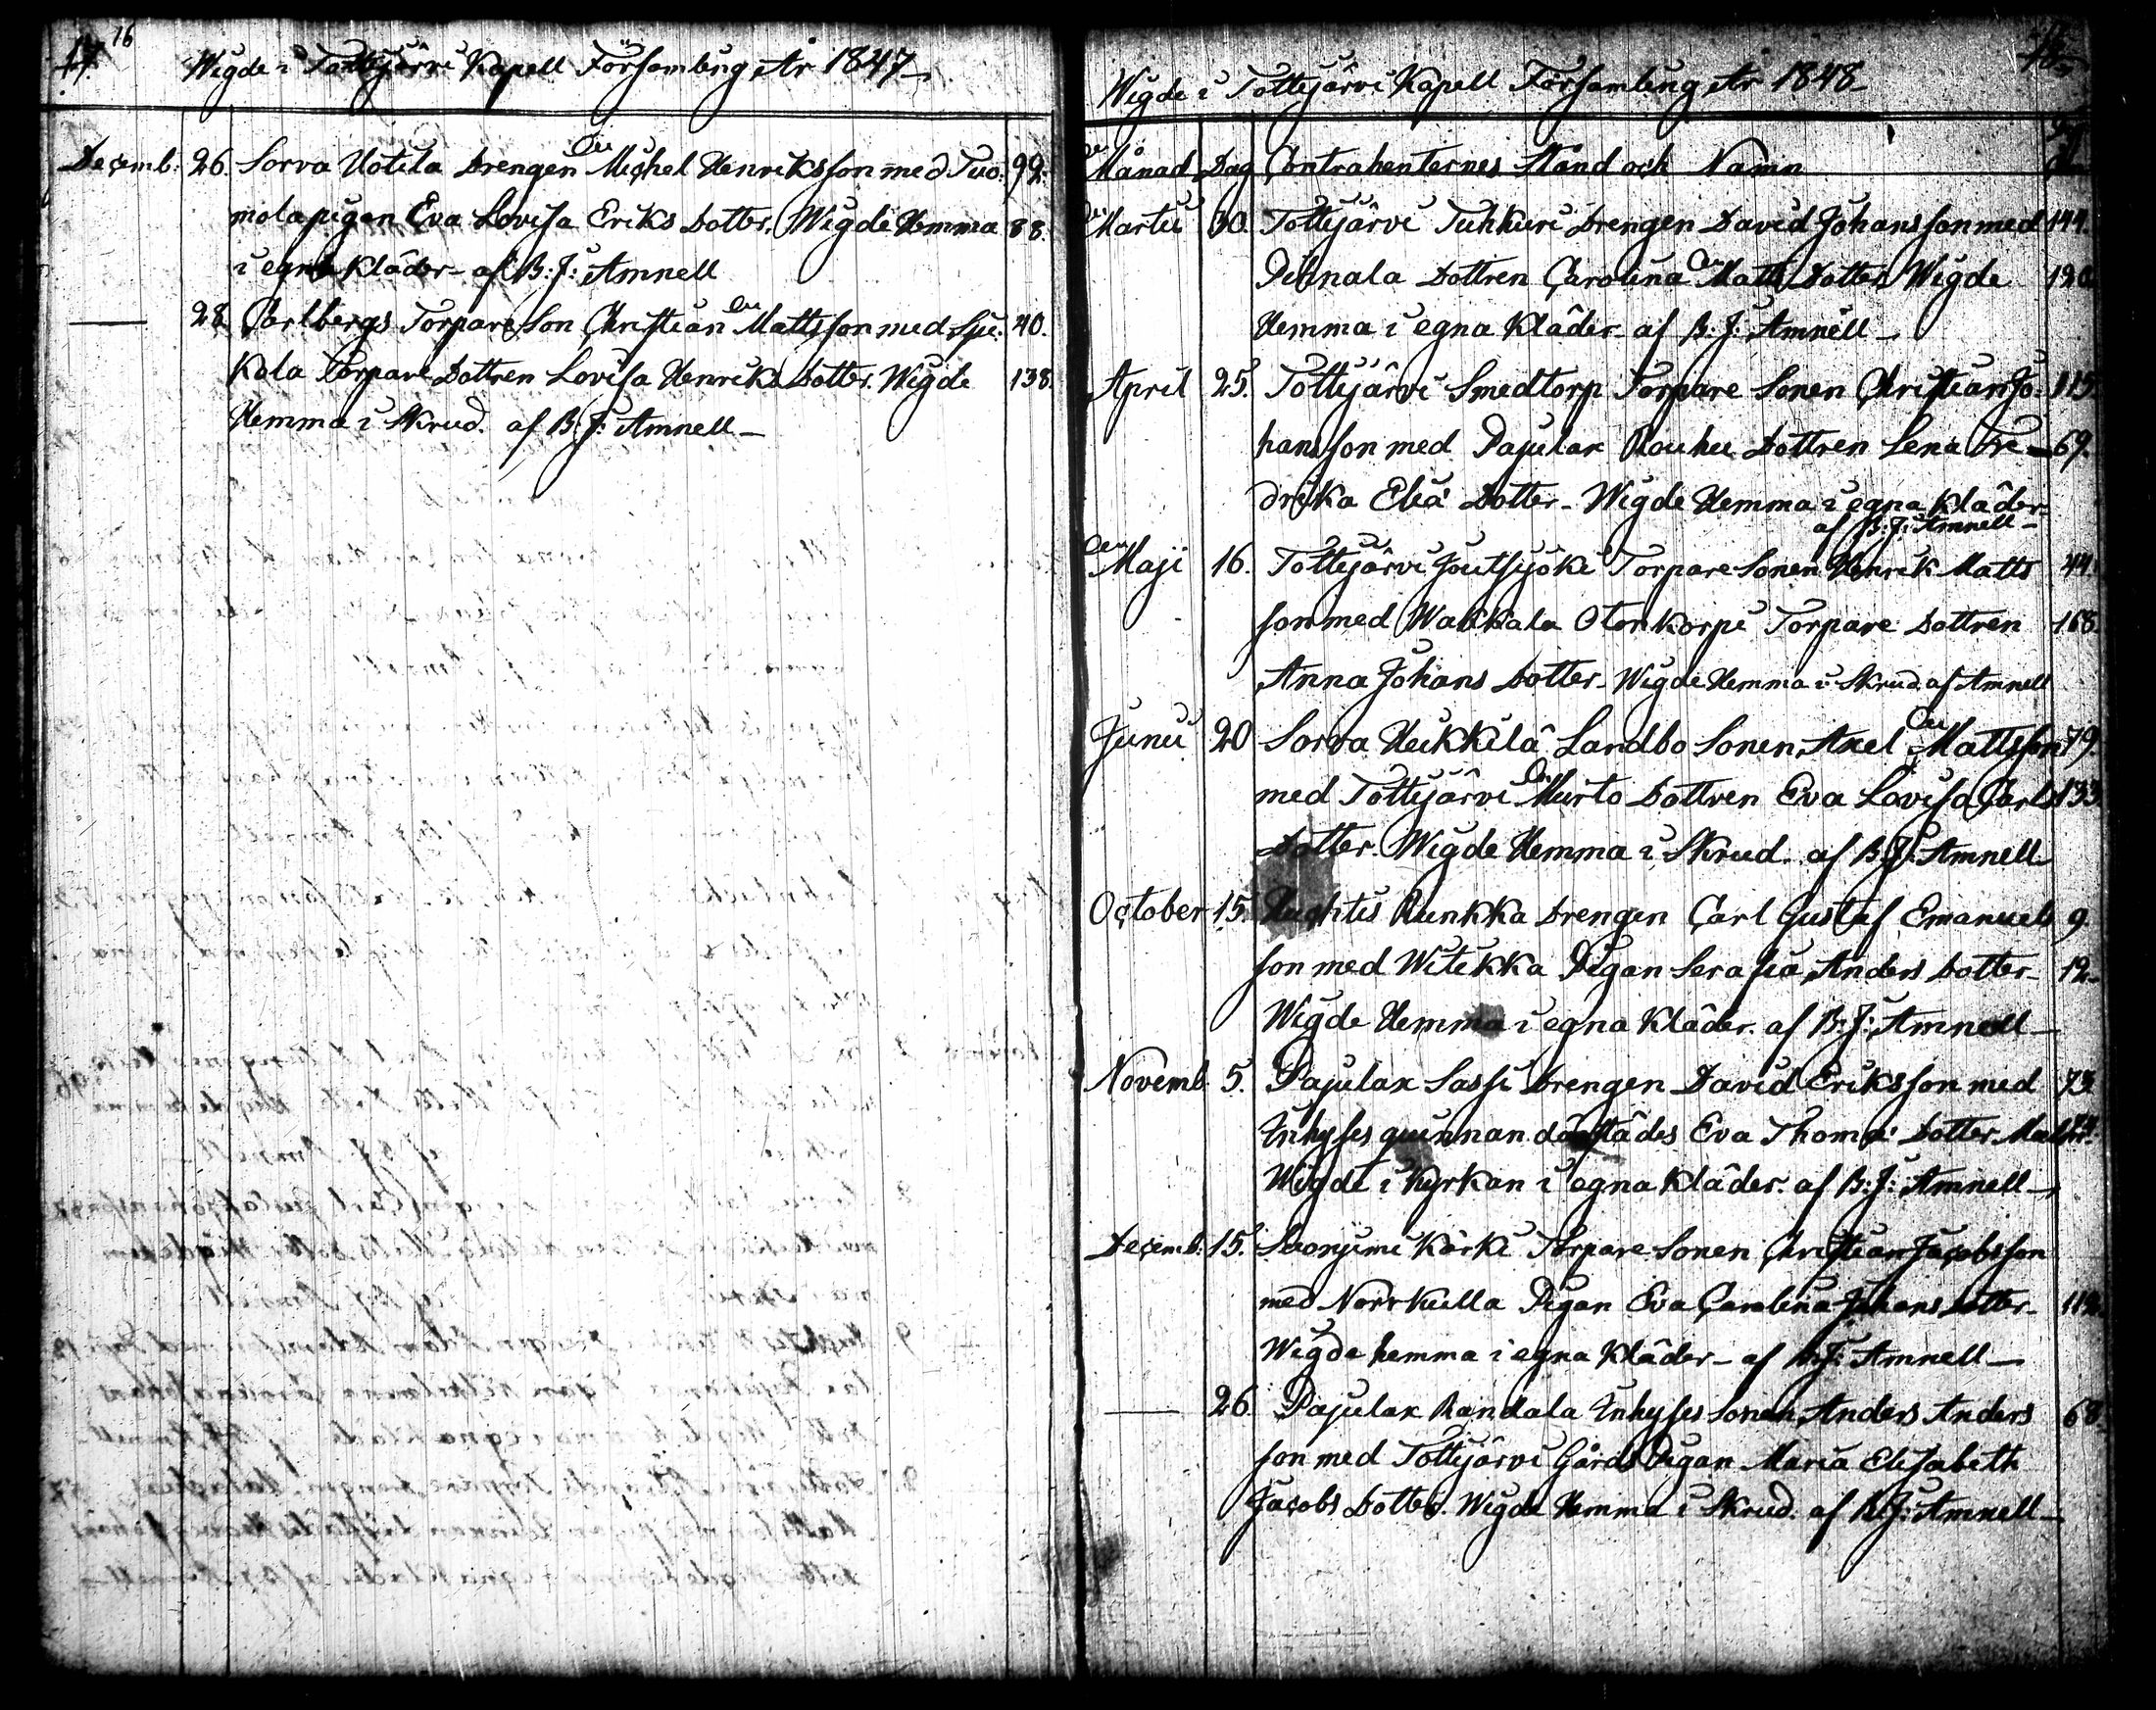 16
17.
Wigde i Tottijärvi Kapell Församling År 1847
Decemb: 26. Sorva Uotila Drengen Michel Henriksson med Tuo: 92.
mola pigan Eva Lovisa Eriks Dotter. Wigde Hemma 88.
i egna Kläder - af B: J: Amnell
28 Carlbergs Torpare Son Christian Mattsson med Spe: 40.
Kola Torpare Dottren Lovisa Henriks Dotter. Wigde 138.
Hemma i Skrud. af B: J: Amnell
Wigde i Tottijärvi Kapell Församling År 1848
Månad Dag Contrahenternes Stånd och Namn
Martii 30. Tottijärvi Tuhkuri Drengen David Johansson med 144.
Pihnala Dottren Carolina Matts Dotter Wigde 120.
Hemma i egna Kläder af B: J: Amnell
April 25. Tottijärvi Smedtorp Torpare Sonen Christian Jo: 115.
hansson med Pajulax Rouhu Dottren Lena Fre 69.
drika Eliæ Dotter - Wigde Hemma i egna Kläder
af B: J: Amnell
Maji 16. Tottijärvi Joutsijoki Torpare Sonen Henrik Matts 44.
son med Wakkala Otonkorpi Torpare Dottren 168.
Anna Johans Dotter - Wigde Hemma i Skrud af Amnell
Junii 20 Sorva Heikkilä Landbo Sonen Axel Mattsson 79.
med Tottijärvi Murto Dottren Eva Lovisa Carls 133
Dotter. Wigde Hemma i Skrud. af B: J: Amnell
October 15. Huchtis Runkka Drengen Carl Gustaf Emanuels 9.
son med Witikka Pigan Serafia Anders Dotter 12.
Wigde Hemma i egna Kläder. af B: J: Amnell
Novemb. 5. Pajulax Sassi Drengen David Eriksson med 73.
Inhyses quinnan därstädes Eva Thomæ Dotter
Wigde i Kyrkan i egna Kläder. af B: J: Amnell
Decemb: 15. Suonjemi Kärki Torpare Sonen Christian Jacobsson
med Norrkulla Pigan Eva Carolina Johans Dotter
Wigde hemma i egna Kläder - af B: J: Amnell
26. Pajulax Randala Inhyses Sonen Anders Anders 68.
son med Tottijärvi Gårds Pigan Maria Elisabeth
Jacobs Dotter. Wigde Hemma i Skrud. af B: J: Amnell